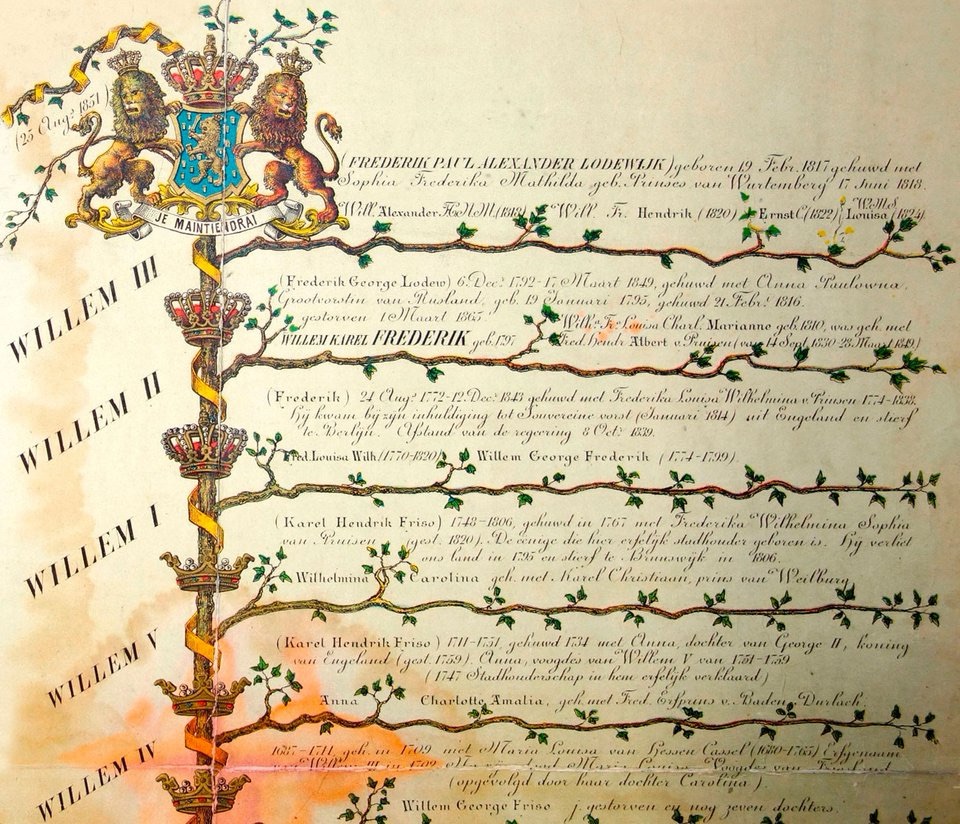 (25 Aug. 1851)
JE MAINTIENDRAI
(FREDERIK PAUL ALEXANDER LODEWIJK) geboren 19 Febr. 1817 gehuwd met
Sophia Frederika Mathilda geb. Prinses van Wurtemberg 17 Juni 1818.
Will. Alexander (1818) Will. Fr. Hendrik (1820) Ernst C. (1822) Louisa (1824)
WILLEM III
(Frederik George Lodew) 6 Dec. 1792-17 Maart 1849, gehuwd met Anna Paulowna.
Grootvorstin van Rusland, geb. 19 Januari 1795, gehuwd 21 Febr. 1816.
gestorven 1 Maart 1865.
Wilh. Fr. Louisa Charl. Marianne geb. 1810, was geh. met
WILLEM KAREL FREDERIK geb. 1797
Fred. Hendr. Albert v. Pruisen (van 14 Sept. 1830-28 Maart 1849)
WILLEM II
(Frederik) 24 Aug. 1772-12 Dec. 1843 gehuwd met Frederika Louisa Wilhelmina v. Pruisen 1774-1838.
Hij kwam bij zijn inhuldiging tot Souvereine vorst (Januari 1814) uit Engeland en stierf
te Berlijn. Afstand van de regeering 8 Oct. 1839.
Fred. Louisa Wilh. (1770-1820) Willem George Frederik (1774-1799).
WILLEM I
(Karel Hendrik Friso) 1748-1806, gehuwd in 1767 met Frederika Wilhelmina Sophia
van Pruisen (gest. 1820). De eenige die hier erfelijk stadhouder geboren is. Hij verliet
ons land in 1795 en stierf te Brunswijk in 1806.
Wilhelmina Carolina geh. met Karel Christiaan, prins van Weilburg
WILLEM V
(Karel Hendrik Friso) 1711-1751, gehuwd 1734 met Anna, dochter van George II, koning
van Engeland (gest. 1759). Anna, voogdes van Willem V van 1751-1759
(1747 Stadhouderschap in hem erfelijk verklaard)
Anna Charlotte Amalia, geh. met Fred. Erfprins v. Baden-Durlach.
WILLEM IV
1687-1711, geh. in 1709 met Maria Louisa van Hessen Cassel (1680-1765) Erfgenaam
van Willem III in 1702. Maria Louise Voogdes van Friesland
(opgevolgd door haar dochter Carolina).
Willem George Friso j. gestorven en nog zeven dochters.